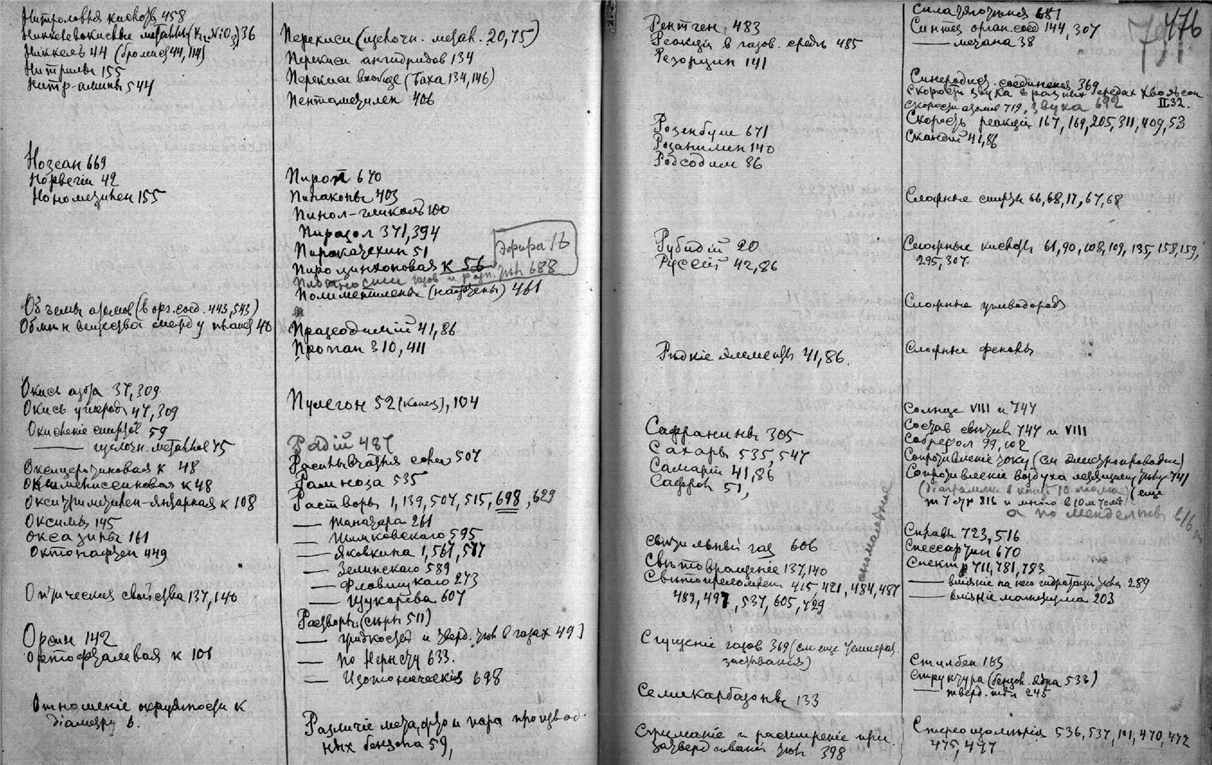 Нитриловыя кислоты 458
Никкелевокислые металлы (K₂NiO₃) 36
Никкель 44 (бромист 44, 114)
Нитрилы 155
Нитр-амины 544
Нозеан 669
Норвегий 42
Нономезитен 155
Объемы атомов (в орг. соед. 443, 543)
Обмен вещества между 40
Окись азота 37, 309
Окись углерода 47, 309
Окисление спиртов 59
—— щелочн. металлов 75
48
к 48
Оксиуримезитен-янтарная к 108
Оксиль 145
Оксазины 161
Октонафтен 449
Оптическия свойства 137, 140
Орсин 142
Ортофталевая к 101
Отношение окружности к
діаметру 6.
Перекиси (щелочн. метал. 20, 75)
Перекиси ангидридов 134
Перекиси вообще (Баха 134, 146)
Пентаметилен 406
Пироп 670
Пинаконы 403
Пинол-гликоль 100
Пиразол 371, 394
Пирокатехин 51
Эфира 16
Пироцинхоновая к 56
Плотности газов и разн. 688
Полиметилены (нафтены) 461
Празеодимій 41, 86
Пропан 310, 411
Пулегон 52 (конец), 104
Радій 487
Расплывчатая соль 507
Рамноза 535
Растворы 1, 139, 507, 515, 698, 629
—— Танатара 261
—— Шишковскаго 595
—— Яковкина 1, 567, 577
—— Зелинскаго 589
—— Флавицкаго 273
—— Щукарева 607
Растворы (сыры 511)
—— жидкостей и тверд. тел в газах 491
—— по Нернсту 633.
—— Изотоническія 698
Различіе мета, орто и пара производ-
ных бензола 59,
Рентген 483
Реакція в газов. среде 485
Резорцин 141
Розенбуш 671
Розанилин 140
Родсодим 86
Рубидій 20
Русcій 42, 86
Редкіе элементы 41, 86.
Сафранины 305
Сахары 535, 547
Самарій 41, 86
Саффоль 51,
Светильный газ 606
Световращение 137, 140
Светопреломлен 415, 421, 484, 487
аномальное
489, 497, 537, 605, 729
Сгущеніе газов 369 (см еще Температ.
застыванія)
Семикарбазоны 133
Сжимание и расширение при
затвердевании тел 398
681
Синтез орган. соед 144, 307
—— метана 38
476
Синеродист. соединенія 369
Скорость звука в разных средах Хвольсон
II 32.
скорости атомов 719, звука 692
Скорость реакціи 167, 169, 205, 311, 409, 53
Скандій 41, 86
Сложные спирты 66, 68, 17, 67, 68
Сложные кислоты 61, 90, 108, 109, 135, 158, 159,
295, 307
Сложные углеводороды
Сложные фенолы
Солнце VIII и 747
Состав светил 747 и VIII
Сабредол 99, 102
Сопротивленіе току (см электропроводность)
Сопротивление воздуха летящему телу 741
(діаграммы в конце 10 тома) (еще
т 7 стр 816 и много в 10 м томе)
а по Менделееву
Справы 723, 516
Спессартин 670
Спектр 711, 781, 783
—— вліяніе на него гидратаціи 289
—— вліяніе магнетизма 203
Стильбен 163
Структура (бензов. ядра 533)
—— тверд. тел 245
Стереоизомерія 536, 537, 101, 470, 472
475, 477